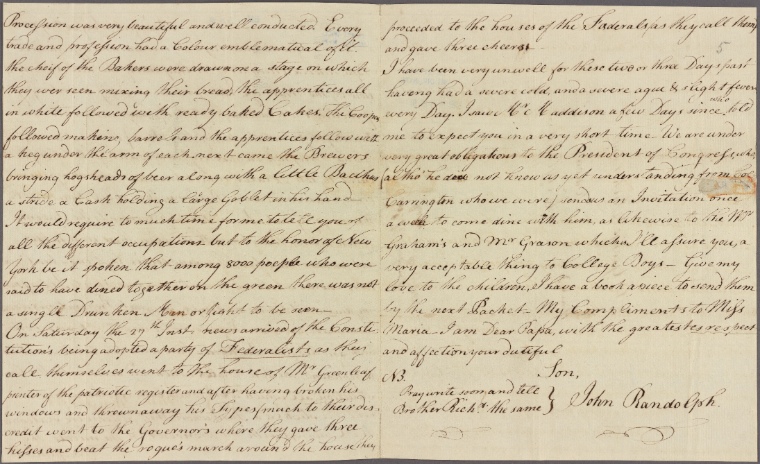 Procession was very beautiful and well conducted Every
trade and profession had a Colour emblematical of it
the cheif of the Bakers were drawn on a stage on which
they wer seen mixing their bread, the apprentices all
in white followed with ready baked Cakes. The Coopers
followed making barrels and the apprentices follow with
a keg under the arm of each, next came the Brewers
bringing hogsheads of beer along with a little Bacchus
a stride a Cask holding a large Goblet in his hand
It would require to much time for me to tell you of
all the different occupations but to the honor of New
York be it spoken that among 8000 people who were
said to have dined together on the green there was not
a single Drunken Man or fight to be seen—
On Saturday the 27th Inst. news arrived of the Consti-
tution's being adopted a party of Federalists as they
call themselves went to the house of Mr Greenleaf
printer of the patriotic register and after having broken his
windows and thrown away his Types (much to their dis-
credit went to the Governor's where they gave three
hisses and beat the rogue's march around the house they
proceeded to the houses of the Faderals (as they call them)
and gave three cheers.
5
I have been very unwell for these two or three Days past
having had a severe cold, and a severe ague & slight fever
every Day. I saw Mr Maddison a few Days since who told
me to expect you in a very short time We are under
very great obligations to the President of Congress who
altho' he did not know us yet understanding from Col
Carrington who we were) sends us an Invitation once
a week to come dine with him, as likewise to the Mr
Graham's and Mr Grason which I'll assure you, a
very acceptable thing to College Boys— Give my
love to the children, I have a book a piece to send them
by the next Packet— My Compliments to Miss
Maria— I am Dear Papa, with the greatest respect
and affection your dutiful
Son,
NB.
Pray write soon and tell
Brother Richd. the same }
John Randolph